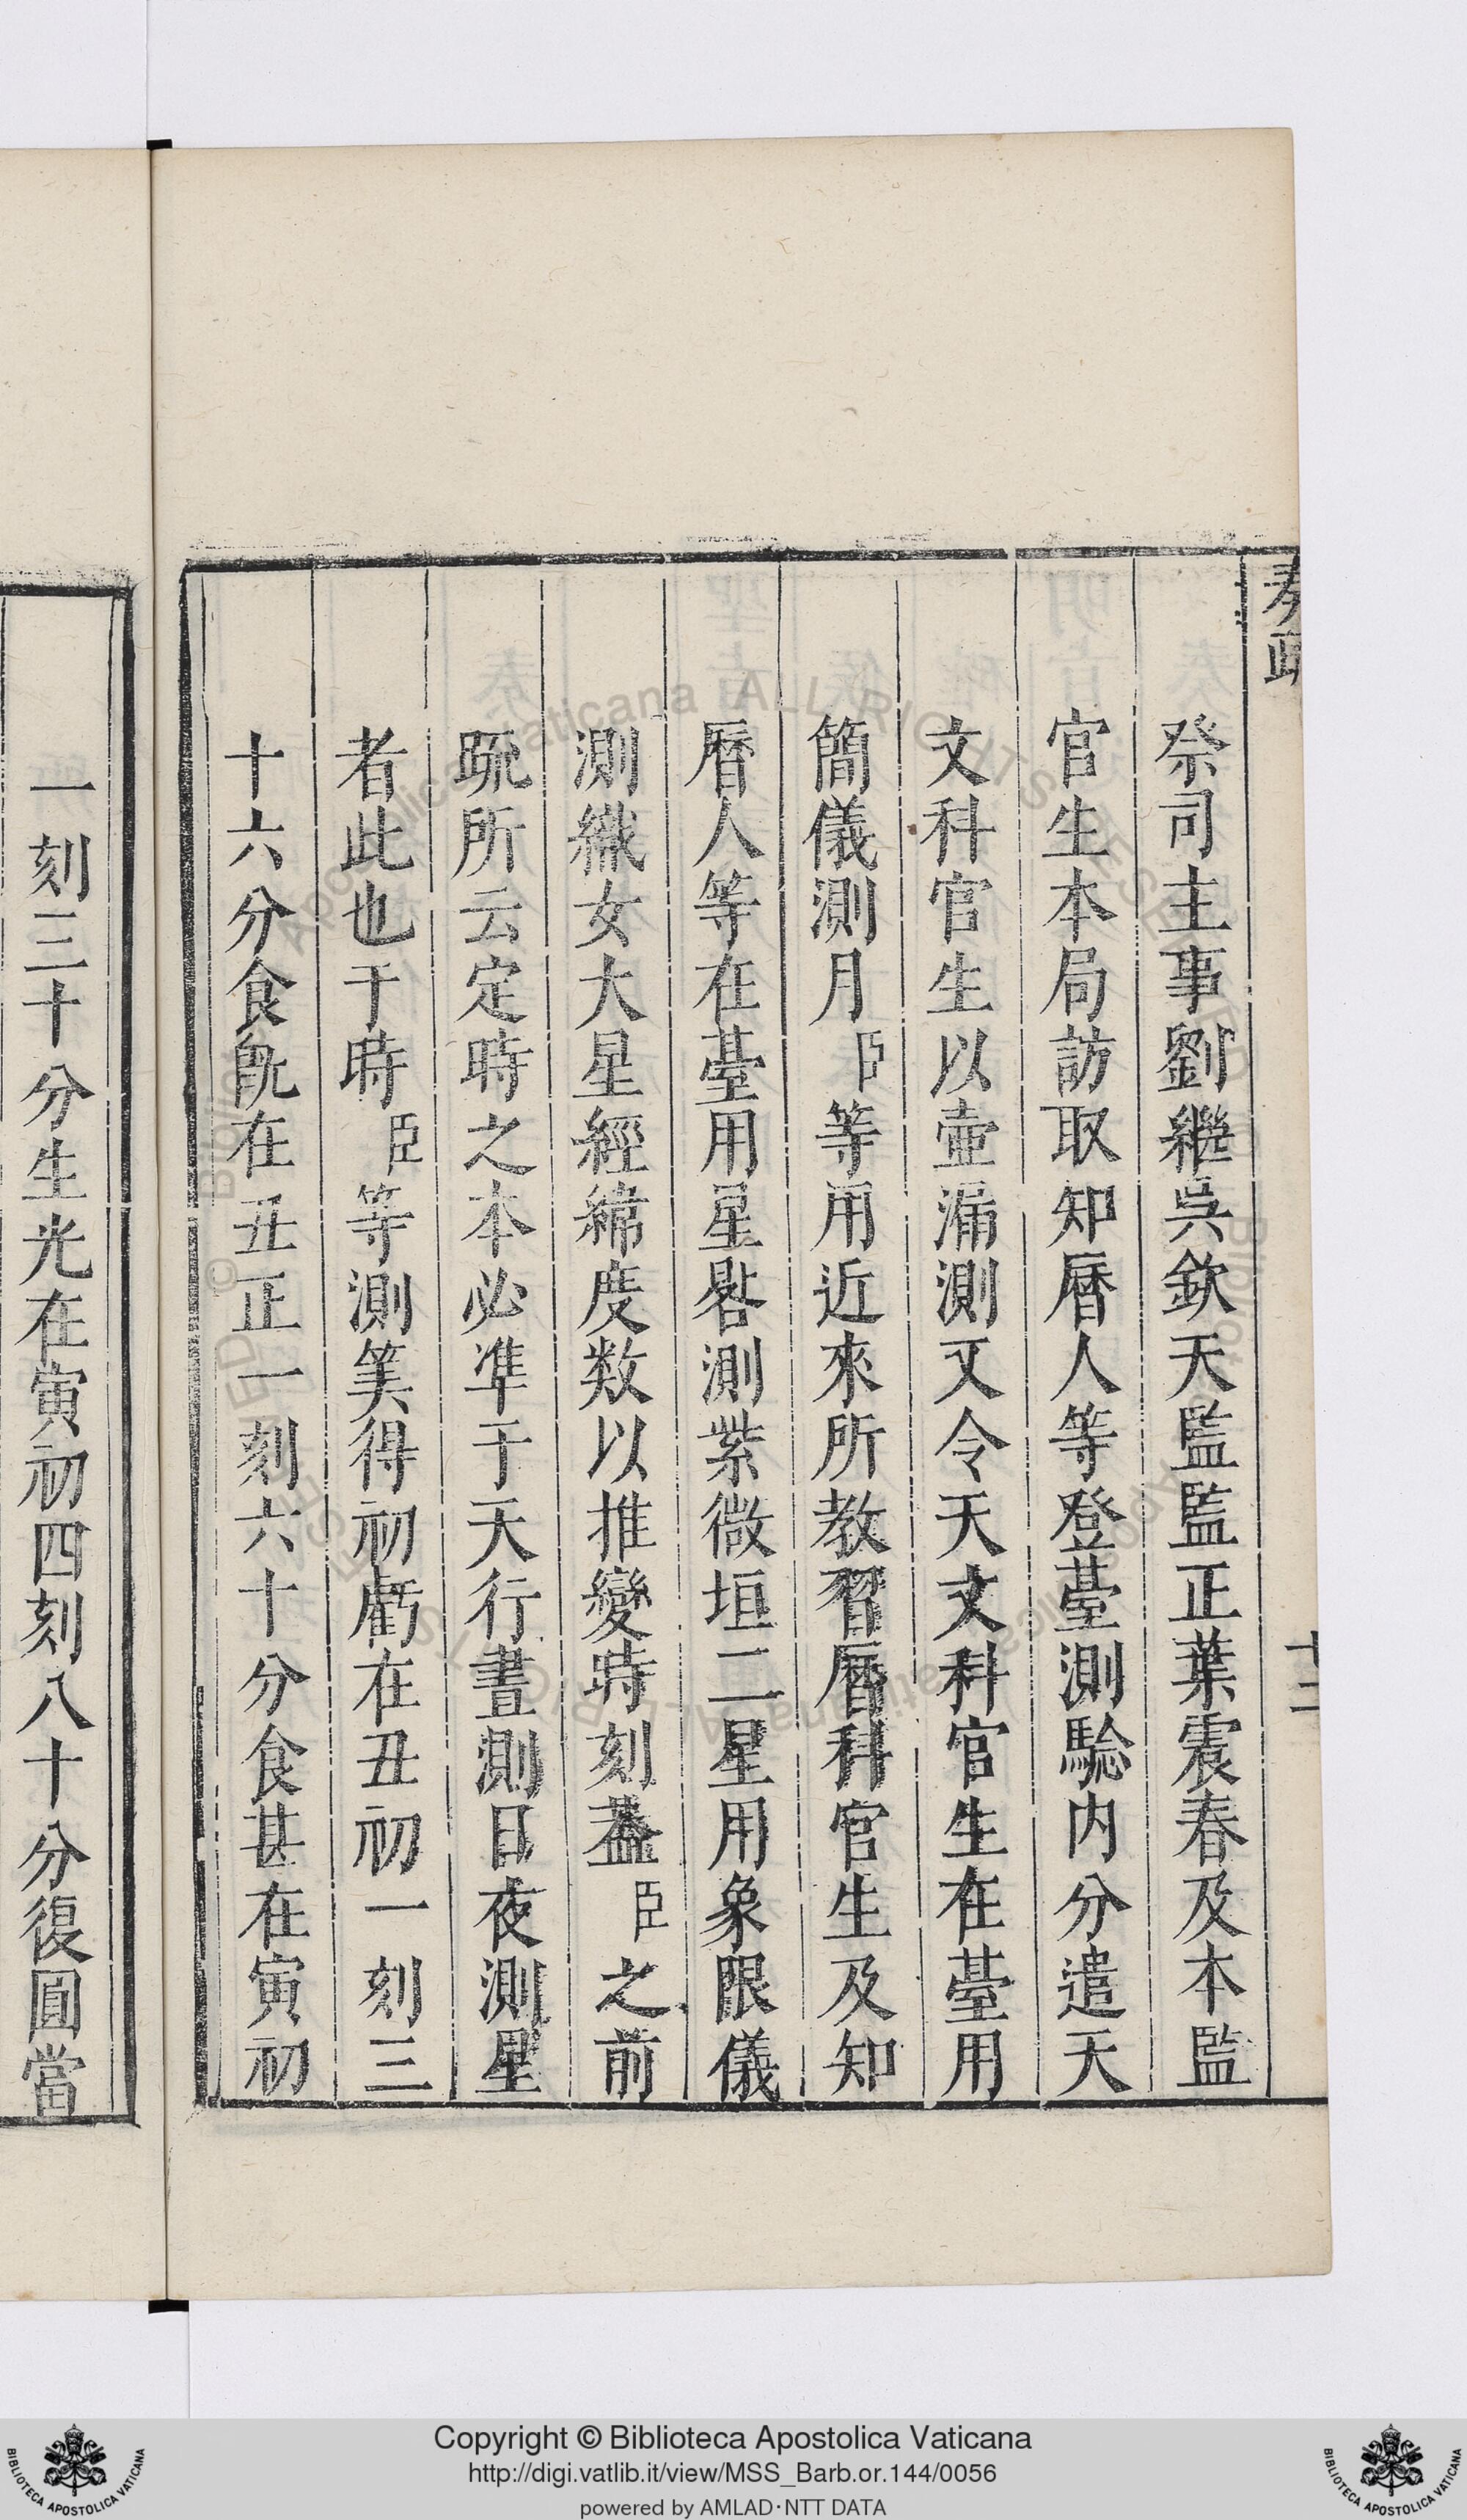 奏疏
十二
祭司主事劉繼吳欽天監監正葉震春及本監
官生本局訪取知曆人等登臺測驗内分遣天
文科官生以壺漏測又令天文科官生在臺用
簡儀測月臣等用近來所教習曆科官生及知
曆人等在臺用星晷測紫微垣二星用象限儀
測織女大星經緯度数以推變時刻葢臣之前
疏所云定時之本必凖于天行晝測日夜測星
者此也于時臣等測筭得初虧在丑初一刻三
十六分食旣在丑正一刻六十分食甚在寅初
一刻三十分生光在寅初四刻八十分復圓當
Copyright © Biblioteca Apostolica Vaticana
http://digi.vatlib.it/view/MSS_Barb.or.144/0056
powered by AMLAD·NTT DATA
BIBLIOTECA APOSTOLICA VATICANA
BIBLIOTECA APOSTOLICA VATICANA